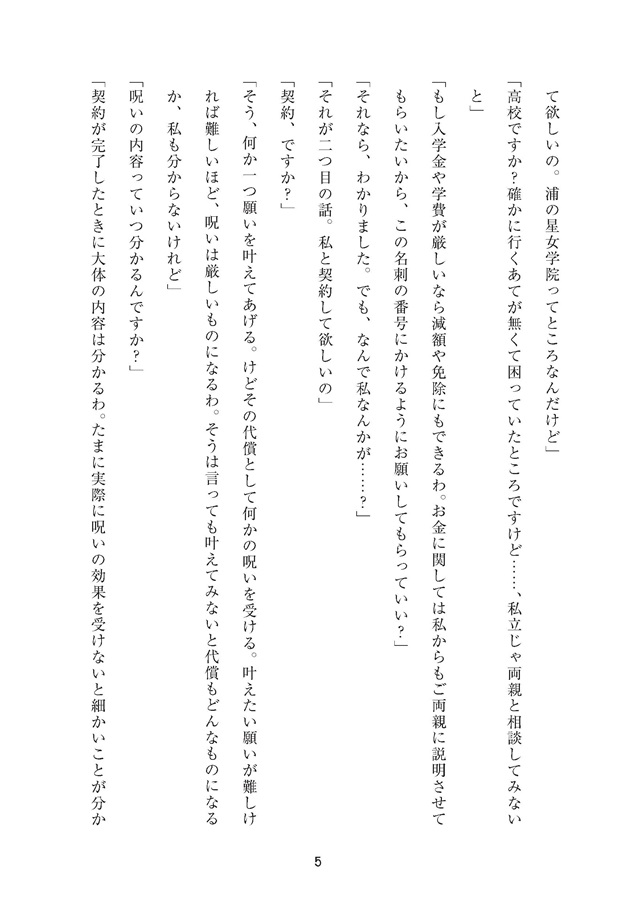 て欲しいの。浦の星女学院ってところなんだけど」
「高校ですか？確かに行くあてが無くて困っていたところですけど……、私立じゃ両親と相談してみない
と」
「もし入学金や学費が厳しいなら減額や免除にもできるわ。お金に関しては私からもご両親に説明させて
もらいたいから、この名刺の番号にかけるようにお願いしてもらっていい？」
「それなら、わかりました。でも、なんで私なんかが……？」
「それが二つ目の話。私と契約して欲しいの」
「契約、ですか？」
「そう、何か一つ願いを叶えてあげる。けどその代償として何かの呪いを受ける。叶えたい願いが難しけ
れば難しいほど、呪いは厳しいものになるわ。そうは言っても叶えてみないと代償もどんなものになる
か、私も分からないけれど」
「呪いの内容っていつ分かるんですか？」
「契約が完了したときに大体の内容は分かるわ。たまに実際に呪いの効果を受けないと細かいことが分か
5